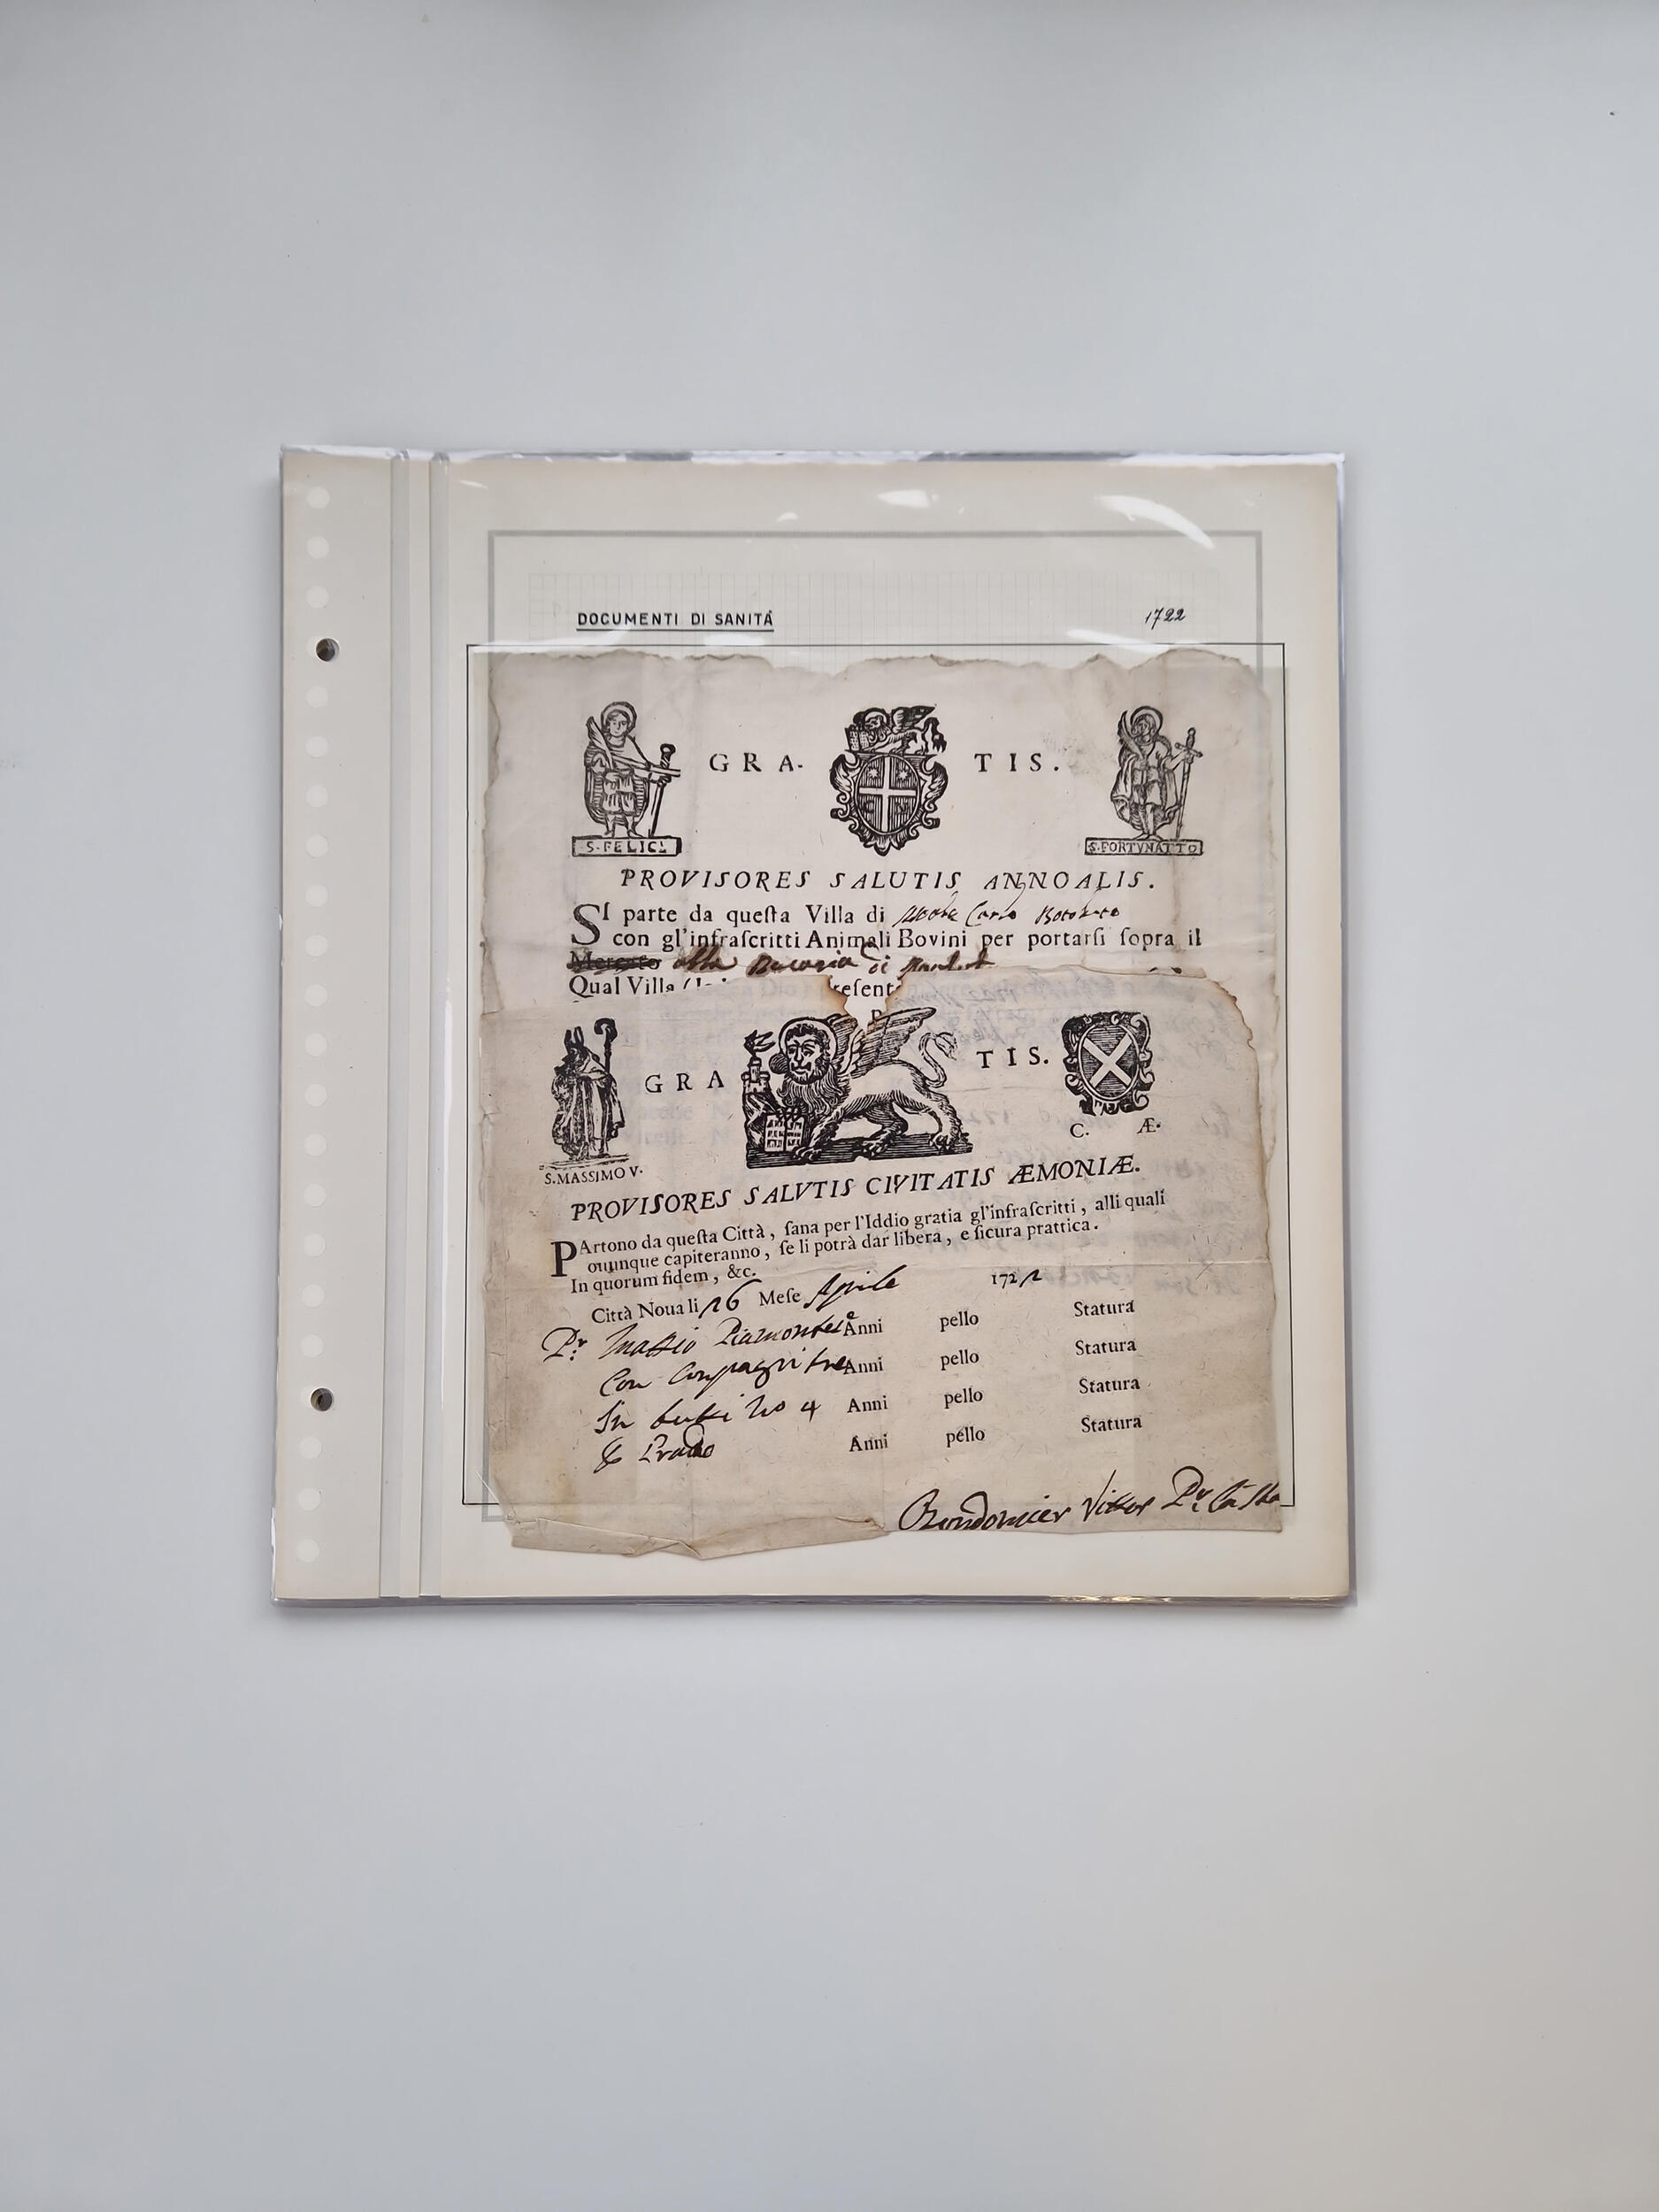 DOCUMENTI DI SANITÁ
1722
GRA- TIS.
S. FELICI
S. FORTVNATTO
PROVISORES SALUTIS ANNOALIS.
SI parte da queſta Villa di
con gl'infraſcritti Animali Bovini per portarſi ſopra il
Mercato alla di
Qual Villa
GRA TIS.
C. Æ.
S. MASSIMO V.
PROVISORES SALVTIS CIVITATIS ÆMONIÆ.
PArtono da queſta Città, ſana per l'Iddio gratia gl'infraſcritti, alli quali
ouunque capiteranno, ſe li potrà dar libera, e ſicura prattica.
In quorum fidem, &c.
Città Noua li 26 Meſe Aprile 1722
Pr: Piamonteſe Anni pello Statura
Con Compagni tre Anni pello Statura
In tutti no 4 Anni pello Statura
Anni pello Statura